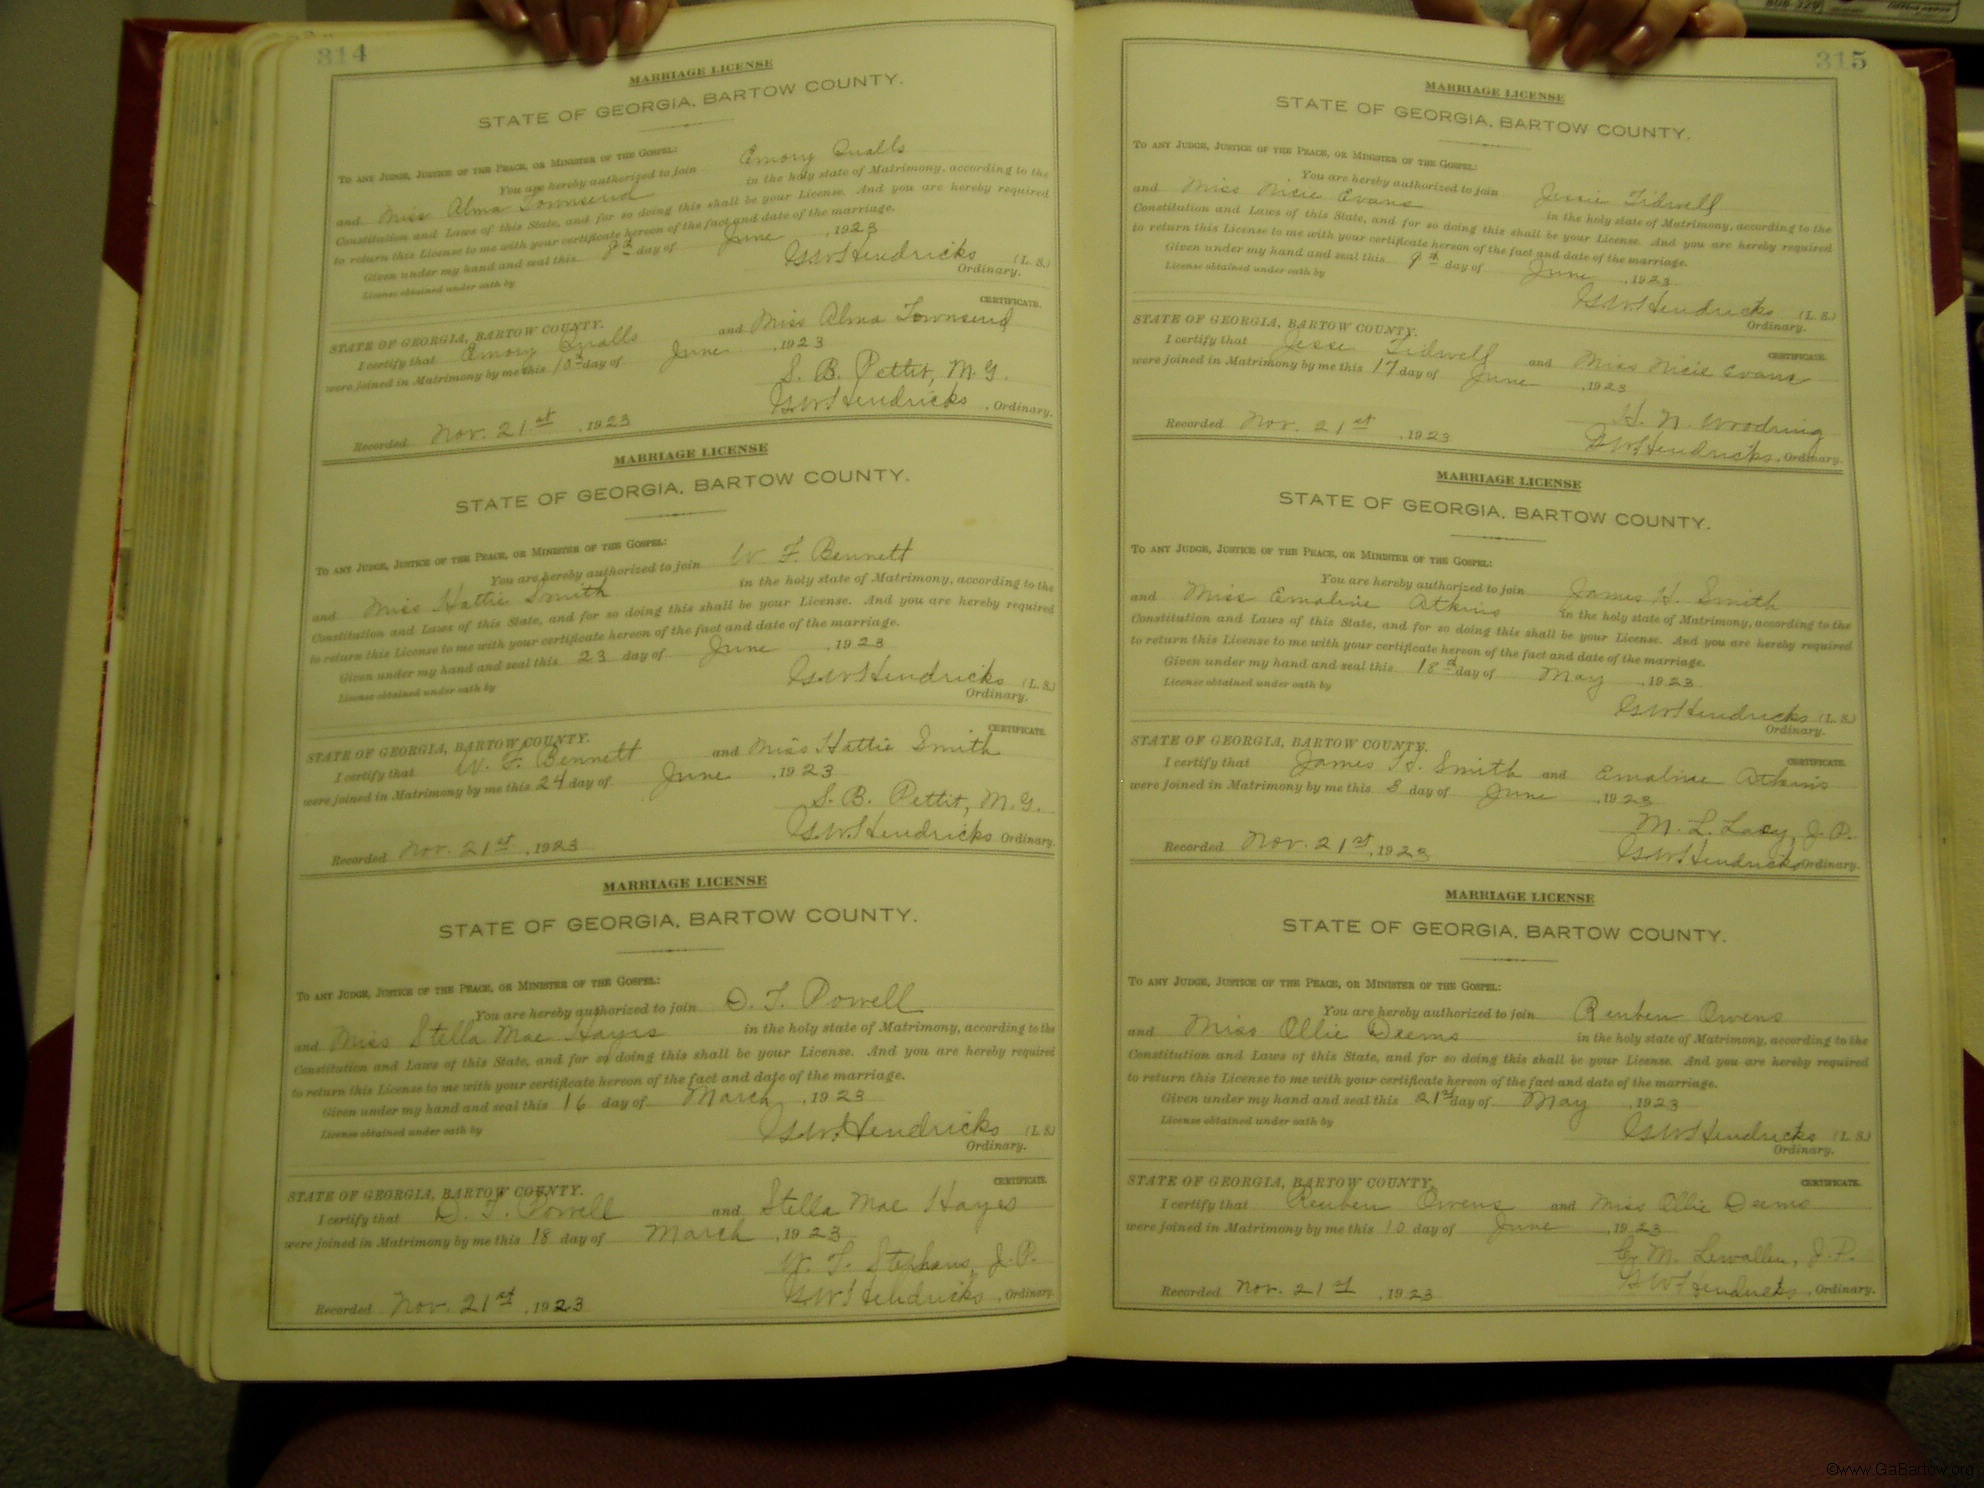 314
MARRIAGE LICENSE
STATE OF GEORGIA, BARTOW COUNTY.
TO ANY JUDGE, JUSTICE OF THE PEACE, OR MINISTER OF THE GOSPEL:
You are hereby authorized to join Emory Qualls
and Miss Alma Townsend in the holy state of Matrimony, according to the
Constitution and Laws of this State, and for so doing this shall be your License. And you are hereby required
to return this License to me with your certificate hereon of the fact and date of the marriage.
Given under my hand and seal this day of June, 1923
License obtained under oath by G.W. Hendricks (L. S.)
Ordinary.
CERTIFICATE.
STATE OF GEORGIA, BARTOW COUNTY.
I certify that Emory Qualls and Miss Alma Townsend
were joined in Matrimony by me this 10th day of June, 1923
S. B. Pettit, M.G.
Recorded Nov. 21st, 1923 G.W. Hendricks, Ordinary.
MARRIAGE LICENSE
STATE OF GEORGIA, BARTOW COUNTY.
TO ANY JUDGE, JUSTICE OF THE PEACE, OR MINISTER OF THE GOSPEL:
You are hereby authorized to join W. F. Bennett
and Miss Hattie Smith in the holy state of Matrimony, according to the
Constitution and Laws of this State, and for so doing this shall be your License. And you are hereby required
to return this License to me with your certificate hereon of the fact and date of the marriage.
Given under my hand and seal this 23 day of June, 1923
License obtained under oath by G.W. Hendricks (L. S.)
Ordinary.
CERTIFICATE.
STATE OF GEORGIA, BARTOW COUNTY.
I certify that W. F. Bennett and Miss Hattie Smith
were joined in Matrimony by me this 24 day of June, 1923
S. B. Pettit, M.G.
Recorded Nov. 21st, 1923 G.W. Hendricks Ordinary.
MARRIAGE LICENSE
STATE OF GEORGIA, BARTOW COUNTY.
TO ANY JUDGE, JUSTICE OF THE PEACE, OR MINISTER OF THE GOSPEL:
You are hereby authorized to join D. F. Powell
and Miss Stella Mae Hayes in the holy state of Matrimony, according to the
Constitution and Laws of this State, and for so doing this shall be your License. And you are hereby required
to return this License to me with your certificate hereon of the fact and date of the marriage.
Given under my hand and seal this 16 day of March, 1923
License obtained under oath by G.W. Hendricks (L. S.)
Ordinary.
CERTIFICATE.
STATE OF GEORGIA, BARTOW COUNTY.
I certify that D. F. Powell and Stella Mae Hayes
were joined in Matrimony by me this 18 day of March, 1923
W. F. Stephens, J.P.
Recorded Nov. 21st, 1923 G.W. Hendricks, Ordinary.
315
MARRIAGE LICENSE
STATE OF GEORGIA, BARTOW COUNTY.
TO ANY JUDGE, JUSTICE OF THE PEACE, OR MINISTER OF THE GOSPEL:
You are hereby authorized to join Jessie Tidwell
and Miss Nicie Evans in the holy state of Matrimony, according to the
Constitution and Laws of this State, and for so doing this shall be your License. And you are hereby required
to return this License to me with your certificate hereon of the fact and date of the marriage.
Given under my hand and seal this 9th day of June, 1923
License obtained under oath by G.W. Hendricks (L. S.)
Ordinary.
CERTIFICATE.
STATE OF GEORGIA, BARTOW COUNTY.
I certify that Jesse Tidwell and Miss Nicie Evans
were joined in Matrimony by me this 17 day of June, 1923
H. N. Woodring
Recorded Nov. 21st, 1923 G.W. Hendricks, Ordinary.
MARRIAGE LICENSE
STATE OF GEORGIA, BARTOW COUNTY.
TO ANY JUDGE, JUSTICE OF THE PEACE, OR MINISTER OF THE GOSPEL:
You are hereby authorized to join James H. Smith
and Miss Emaline Atkins in the holy state of Matrimony, according to the
Constitution and Laws of this State, and for so doing this shall be your License. And you are hereby required
to return this License to me with your certificate hereon of the fact and date of the marriage.
Given under my hand and seal this 18th day of May, 1923
License obtained under oath by G.W. Hendricks (L. S.)
Ordinary.
CERTIFICATE.
STATE OF GEORGIA, BARTOW COUNTY.
I certify that James H. Smith and Emaline Atkins
were joined in Matrimony by me this 8 day of June, 1923
M. L. Lacy, J.P.
Recorded Nov. 21st, 1923 G.W. Hendricks Ordinary.
MARRIAGE LICENSE
STATE OF GEORGIA, BARTOW COUNTY.
TO ANY JUDGE, JUSTICE OF THE PEACE, OR MINISTER OF THE GOSPEL:
You are hereby authorized to join Reuben Owens
and Miss Ollie Deems in the holy state of Matrimony, according to the
Constitution and Laws of this State, and for so doing this shall be your License. And you are hereby required
to return this License to me with your certificate hereon of the fact and date of the marriage.
Given under my hand and seal this 21st day of May, 1923
License obtained under oath by G.W. Hendricks (L. S.)
Ordinary.
CERTIFICATE.
STATE OF GEORGIA, BARTOW COUNTY.
I certify that Reuben Owens and Miss Ollie Deems
were joined in Matrimony by me this 10 day of June, 1923
M. Lewallen, J.P.
Recorded Nov. 21st, 1923 G.W. Hendricks, Ordinary.
©www.GaBartow.org